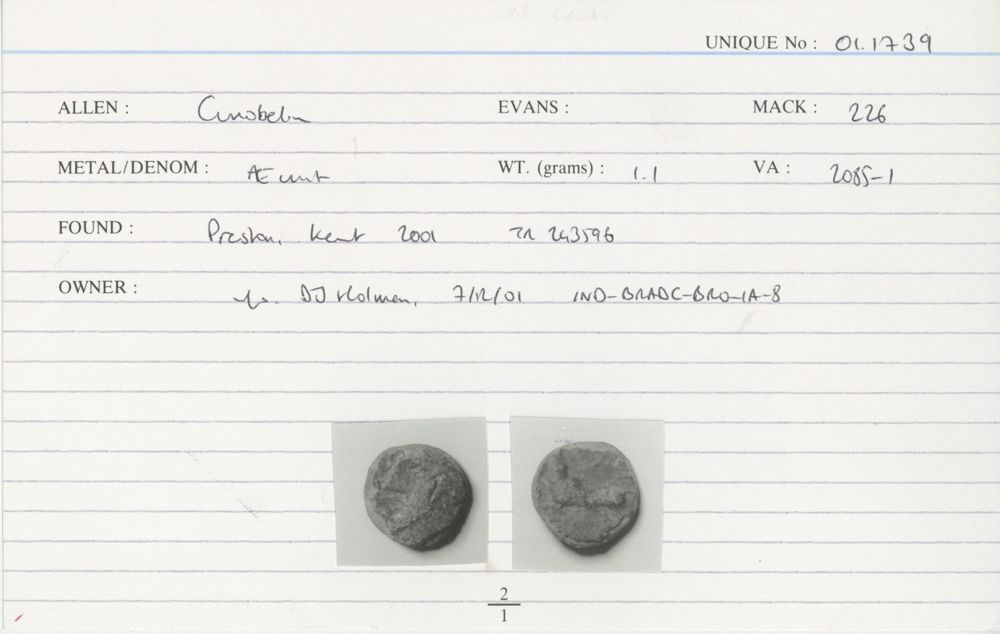 UNIQUE No : 01.1739
ALLEN : Cunobelin EVANS : MACK : 226
METAL/DENOM : Æ unit WT. (grams) : 1.1 VA : 2085-1
FOUND : Preston, Kent 2001 TR 243596
OWNER : DJ Holman, 7/12/01 IND-BRADC-BRO-IA-8
2
1